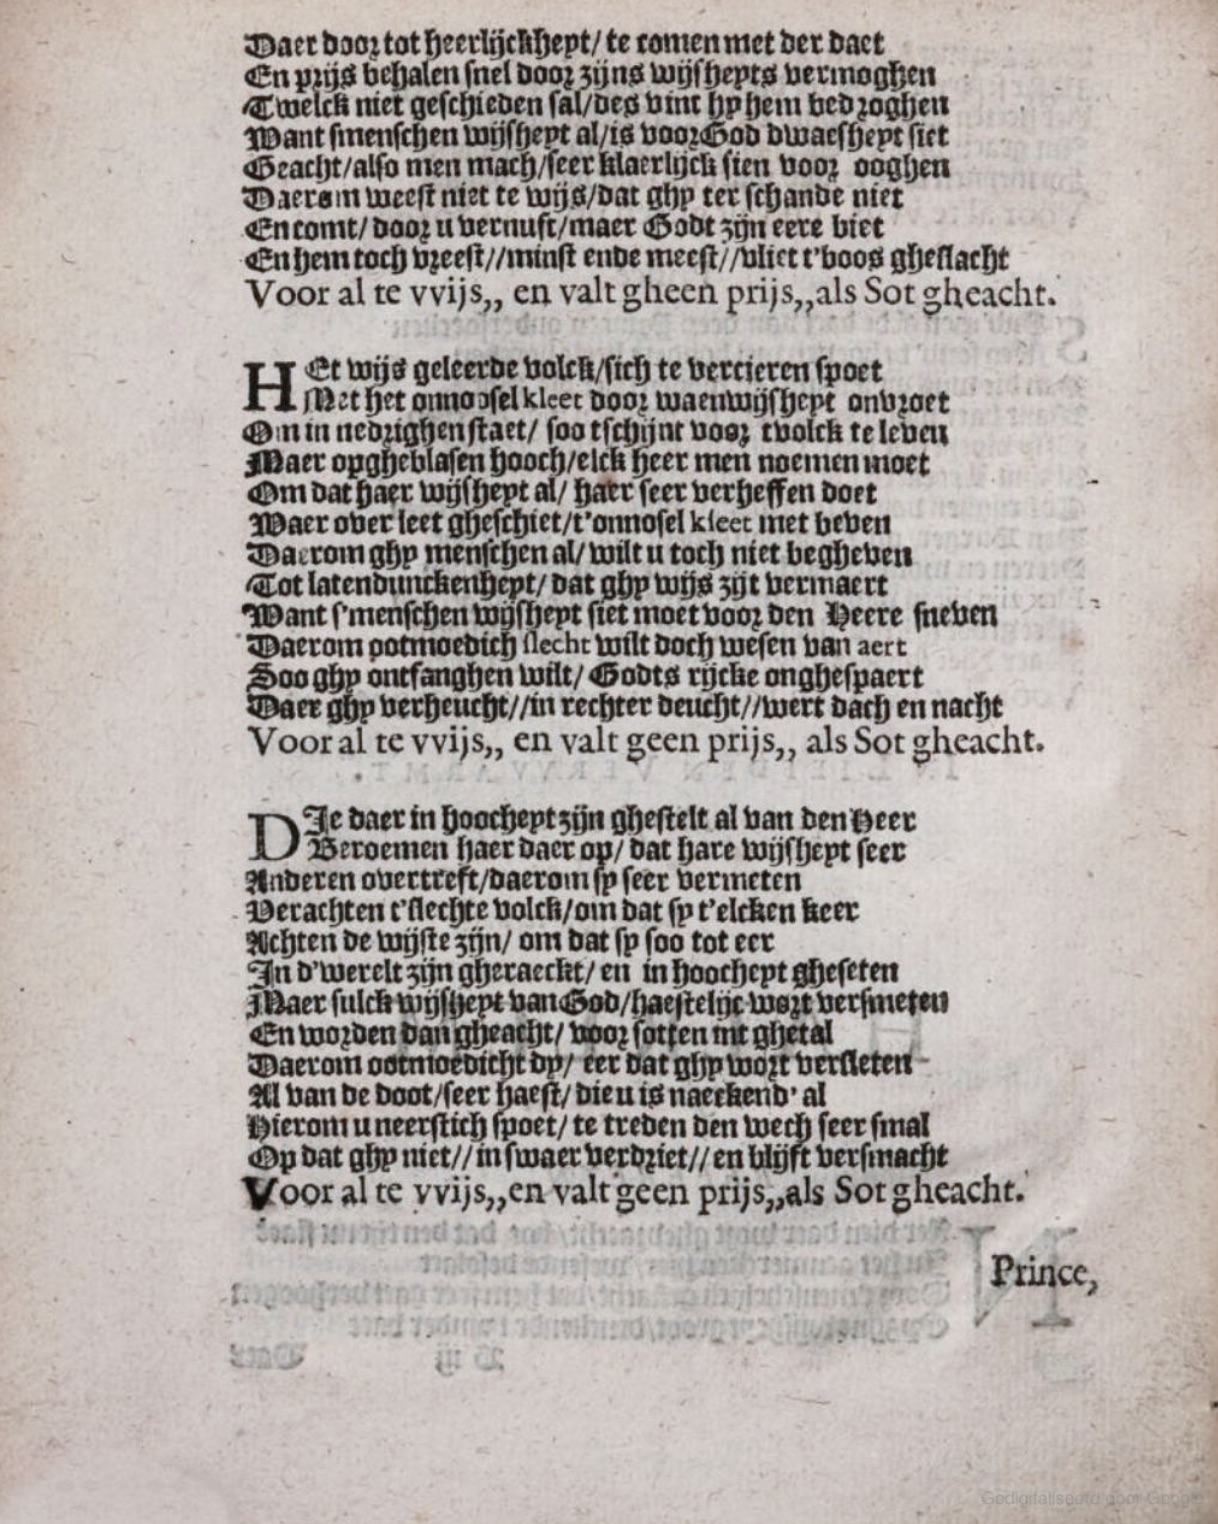 Daer door tot heerlijckheyt/ te comen met der daet
En prijs behalen snel door zijns wijsheyts vermoghen
Twelck niet geschieden sal/des vint hy hem bedroghen
Want smenschen wijsheyt al/is voor God dwaesheyt siet
Geacht/also men mach/seer klaerlijck sien voor ooghen
Daerom weest niet te wijs/dat ghy ter schande niet
En comt/ door u vernuft/maer Godt zijn eere biet
En hem toch vreest//minst ende meest//vliet t'boos gheslacht
Voor al te vvijs,, en valt gheen prijs,,als Sot gheacht.
HEt wijs geleerde volck/sich te vercieren spoet
Met het onnoosel kleet door waenwijsheyt onvroet
Om in nedrighen staet/ soo tschijnt voor tvolck te leven
Maer opgheblasen hooch/elck heer men noemen moet
Om dat haer wijsheyt al/ haer seer verheffen doet
Waer over leet gheschiet/t'onnosel kleet met beven
Daerom ghy menschen al/ wilt u toch niet begheven
Tot latendunckenheyt/ dat ghy wijs zijt vermaert
Want s'menschen wijsheyt siet moet voor den Heere sneven
Daerom ootmoedich slecht wilt doch wesen van aert
Soo ghy ontfanghen wilt/ Godts rijcke onghespaert
Daer ghy verheucht//in rechter deucht//wert dach en nacht
Voor al te vvijs,, en valt geen prijs,, als Sot gheacht.
DIe daer in hoocheyt zijn ghestelt al van den Heer
Beroemen haer daer op/ dat hare wijsheyt seer
Anderen overtreft/daerom sy seer vermeten
Verachten t'slechte volck/om dat sy t'elcken keer
Achten de wijste zijn/ om dat sy soo tot eer
In d'werelt zijn gheraeckt/ en in hoocheyt gheseten
Maer sulck wijsheyt van God/haestelijc wort versmeten
En worden dan gheacht/ voor sotten int ghetal
Daerom ootmoedicht dy/ eer dat ghy wort versleten
Al van de doot/seer haest/ die u is naeckend' al
Hierom u neerstich spoet/ te treden den wech seer smal
Op dat ghy niet//in swaer verdriet//en blijft versmacht
Voor al te vvijs,,en valt geen prijs,,als Sot gheacht.
Prince,
Gedigitaliseerd door Google